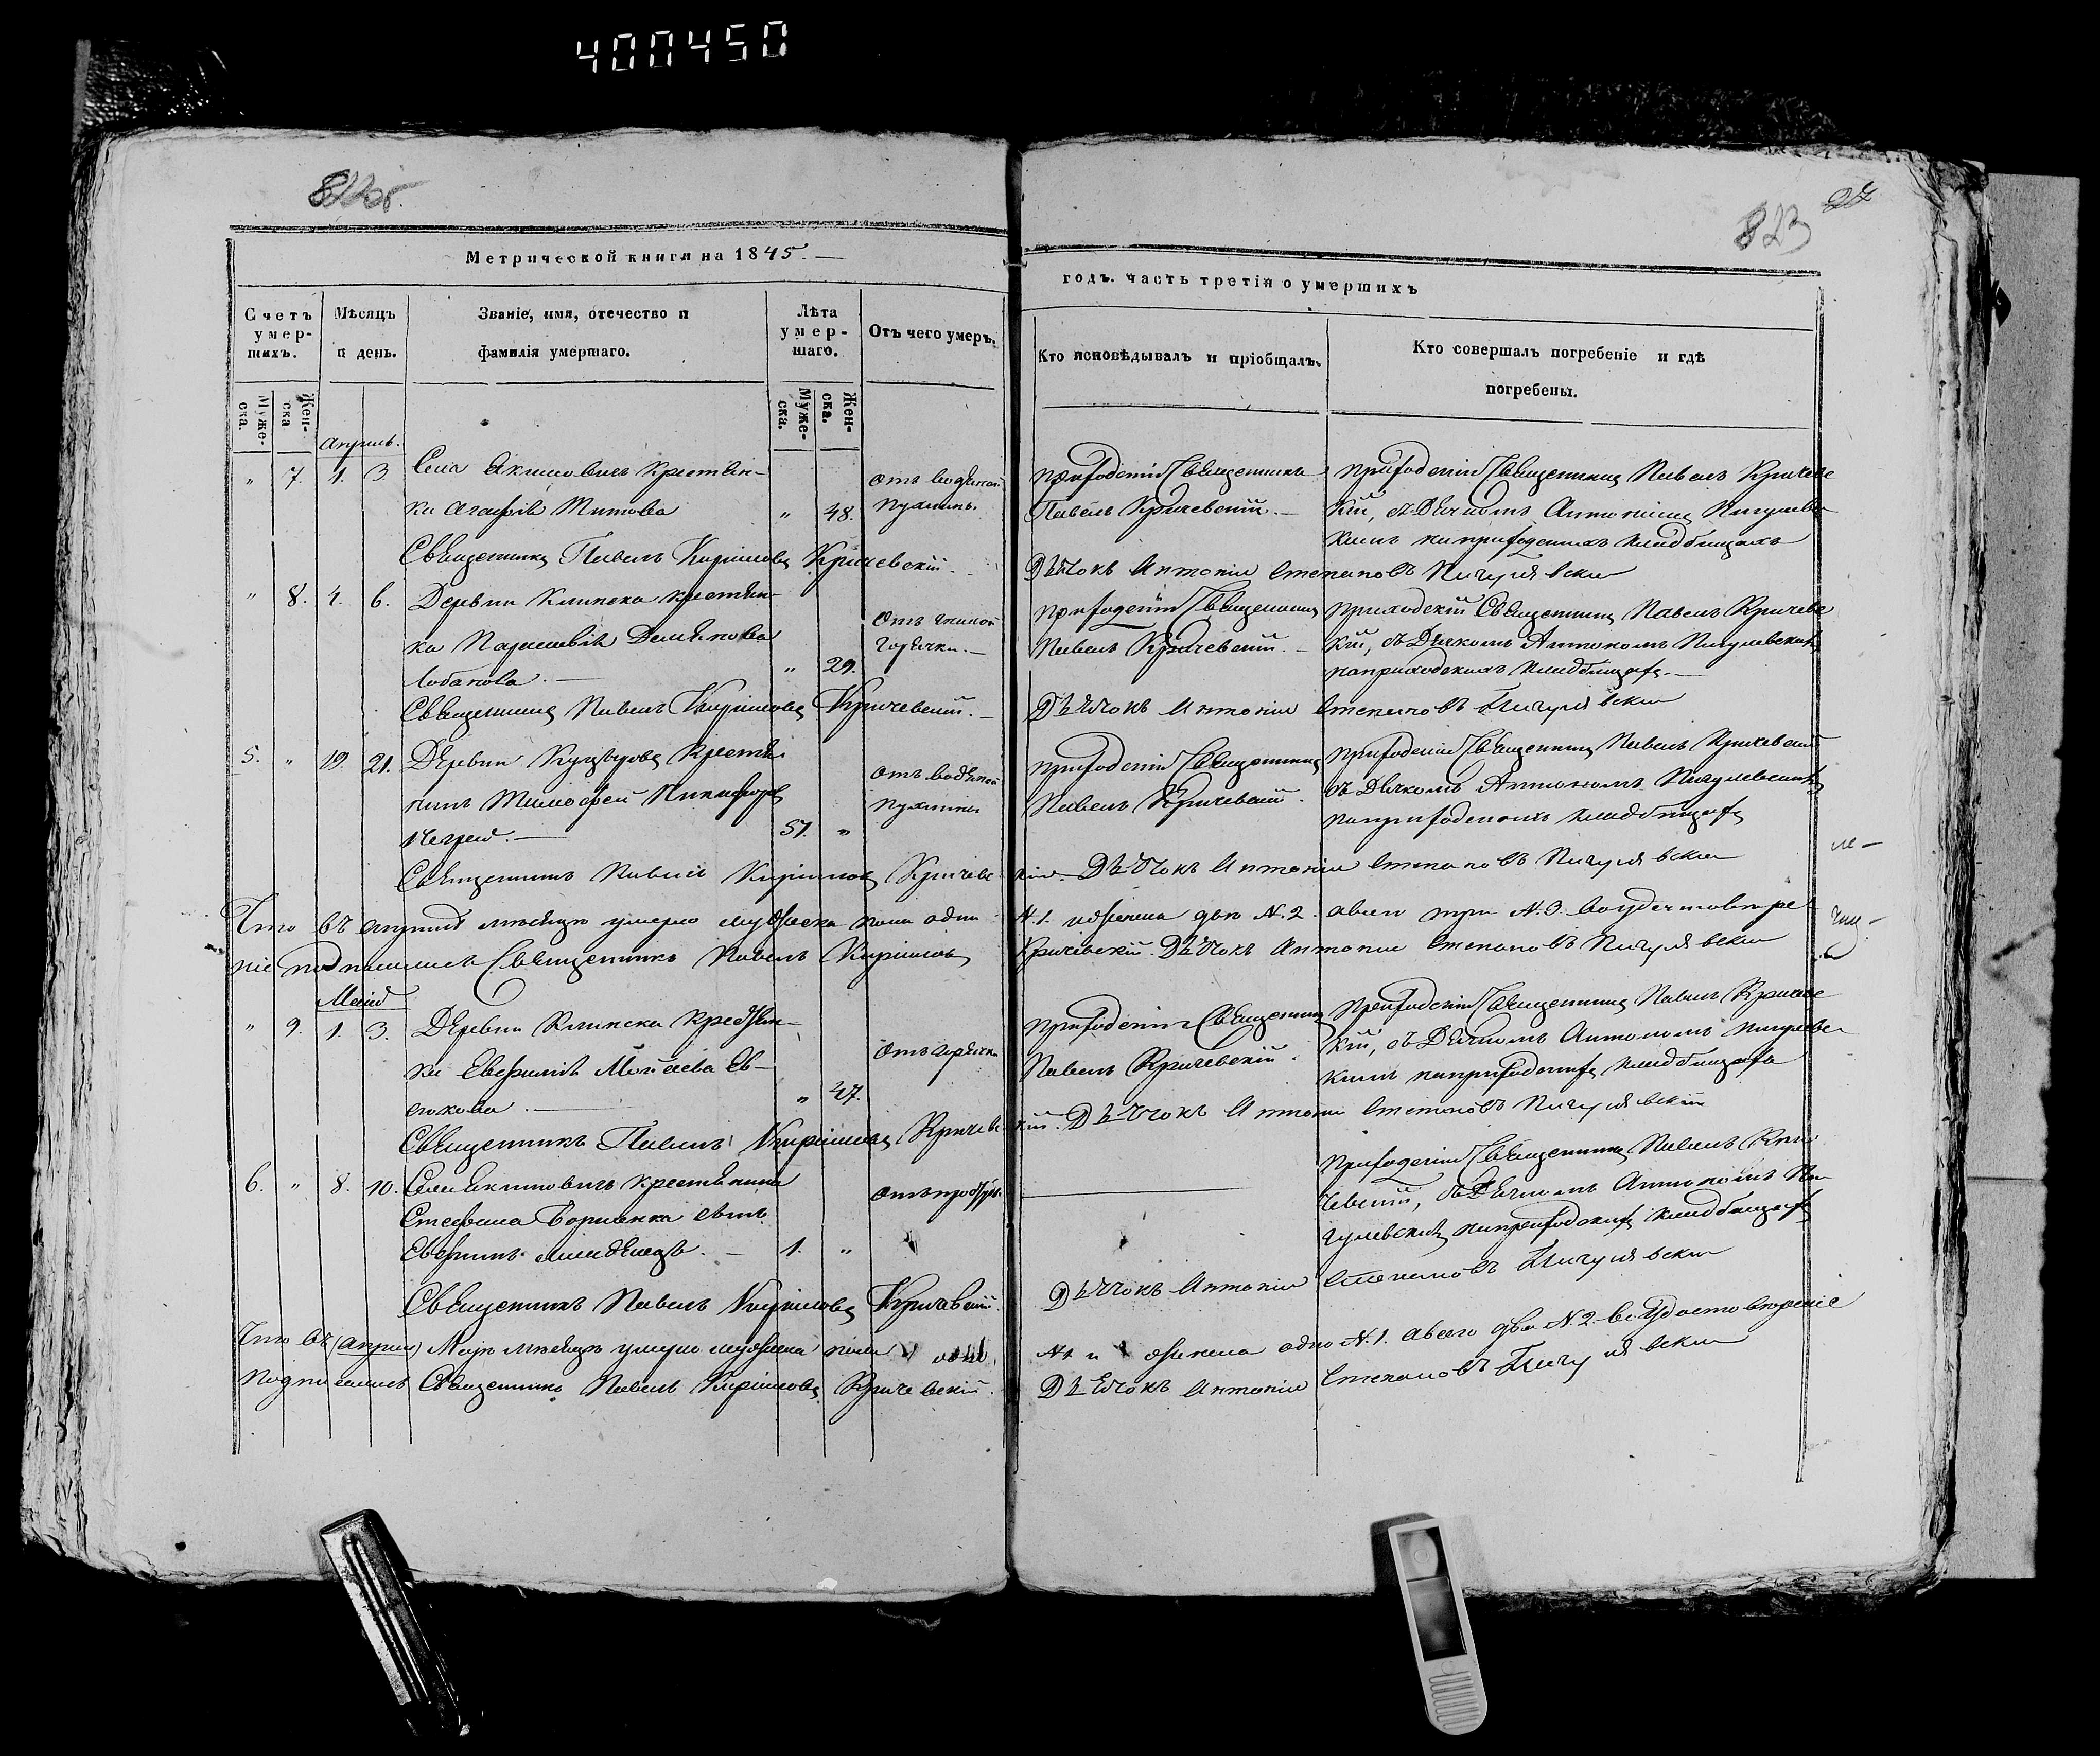 400450
823
Метрической книги на 1845.
годъ. часть третія о умершихъ
Счетъ умер-шихъ.
Мѣсяцъ и день.
Званіе, имя, отечество и фамилія умершаго.
Лѣта умер-шаго.
Отъ чего умеръ.
Кто исповѣдывалъ и пріобщалъ.
Кто совершалъ погребеніе и гдѣ погребены.
Муже-ска.
Жен-ска
Муже-ска.
Жен-ска.
Апрель.
" 7. 1. 3. Села Акимовичъ крестьян-
ка Агафія Титова " 48.
отъ водяной
пухлины
приходскій Священникъ
Павелъ Кричевскій.
приходскій Священникъ Павелъ Кричевс
кій, съ Дячкомъ Антоніемъ Пигулевс
кимъ на приходскихъ кладбищахъ
Священникъ Павелъ Кириловъ Кричевскій.
Дѣячокъ Антоній Степановъ Пигулевски
" 8. 4. 6. Деревни Клинска крестьян-
ка Параскевія Демьянова
Лобанова. " 29.
отъ гнилой
горячки.
приходскій Священникъ
Павелъ Кричевскій.
приходскій Священникъ Павелъ Кричевс
кій, съ Дячкомъ Антономъ Пигулевскимъ
на приходскихъ кладбищахъ.
Священникъ Павелъ Кириловъ Кричевскій.
Дѣячокъ Антоній Степановъ Пигулевски
5. " 19. 21. Деревни крестья
нинъ Тимофей Никифоровъ
57. "
отъ водяной
пухлины
приходскій Священникъ
Павелъ Кричевскій.
приходскій Священникъ Павелъ Кричевскій
съ Дячкомъ Антономъ Пигулевскимъ
на приходскихъ кладбищахъ
Священникъ Павелъ Кириловъ Кричевскій. Дѣячокъ Антоній Степановъ Пигулевски
Что въ апрелѣ мѣсяцѣ умерло мужеска пола одинъ N. 1. и женска два N. 2. а всего три N. 3. во удостовѣре
ніе подписались Священникъ Павелъ Кириловъ Кричевскій. Дѣячокъ Антоній Степановъ Пигулевски
Май
" 9. 1. 3. Деревни Клинска крестьян-
ка Евфимія Мойсіева
" 47.
отъ горячки
приходскій Священникъ
Павелъ Кричевскій.
приходскій Священникъ Павелъ Кричевс
кій, съ Дячкомъ Антономъ Пигулевс
кимъ на приходскихъ кладбищахъ
Священникъ Павелъ Кириловъ Кричевскій. Дѣячокъ Антоній Степановъ Пигулевскій
6. " 8. 10. Села Акимовичъ крестьянина
Стефана сынъ
Евфимъ младенецъ. 1. "
приходскій Священникъ Павелъ Кри
чевскій, съ Дячкомъ Антономъ Пи
гулевскимъ на приходскихъ кладбищахъ
Священникъ Павелъ Кириловъ Кричевскій.
Дѣячокъ Антоній Степановъ Пигулевски
Что въ (апрелѣ) Маѣ мѣсяцѣ умерло мужеска пола одинъ N. 1 и женска одно N. 1. а всего два N. 2. во удостовѣреніе
подписались Священникъ Павелъ Кириловъ Кричевскій. Дѣячокъ Антоній Степановъ Пигулевски